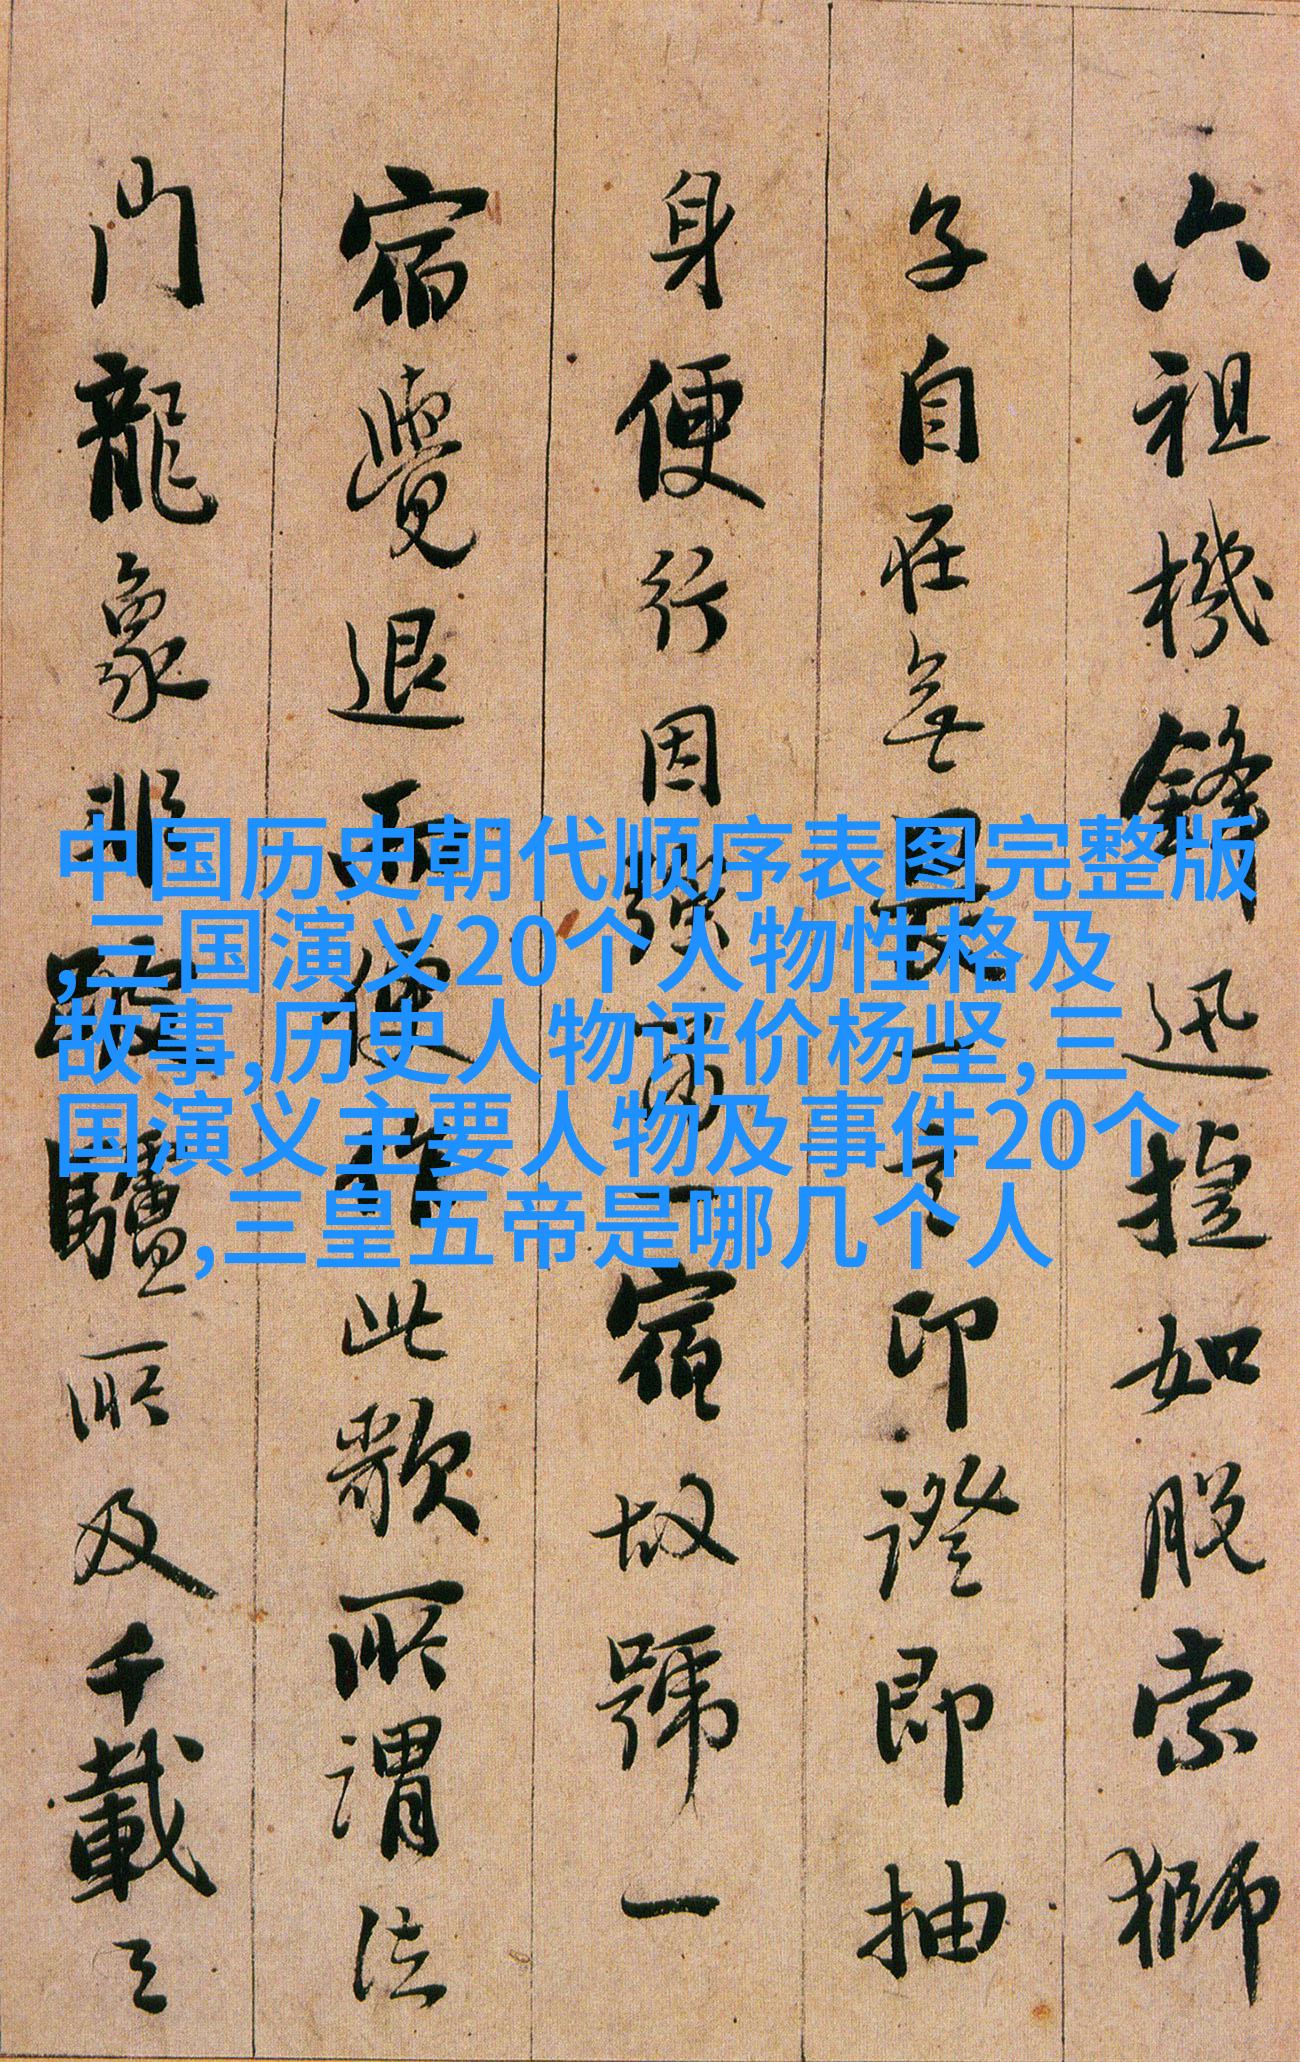 六祖機鋒迅捷如脫索獅
子自在無言印證即抽
身便行因強留一宿故號一
宿覺退而便作此歌所謂法
門龍象非驢所及千載之
中国历史朝代顺序表图完整版
,三国演义20个人物性格及
故事,历史人物评价杨坚,三
国演义主要人物及事件20个
,三皇五帝是哪几个人